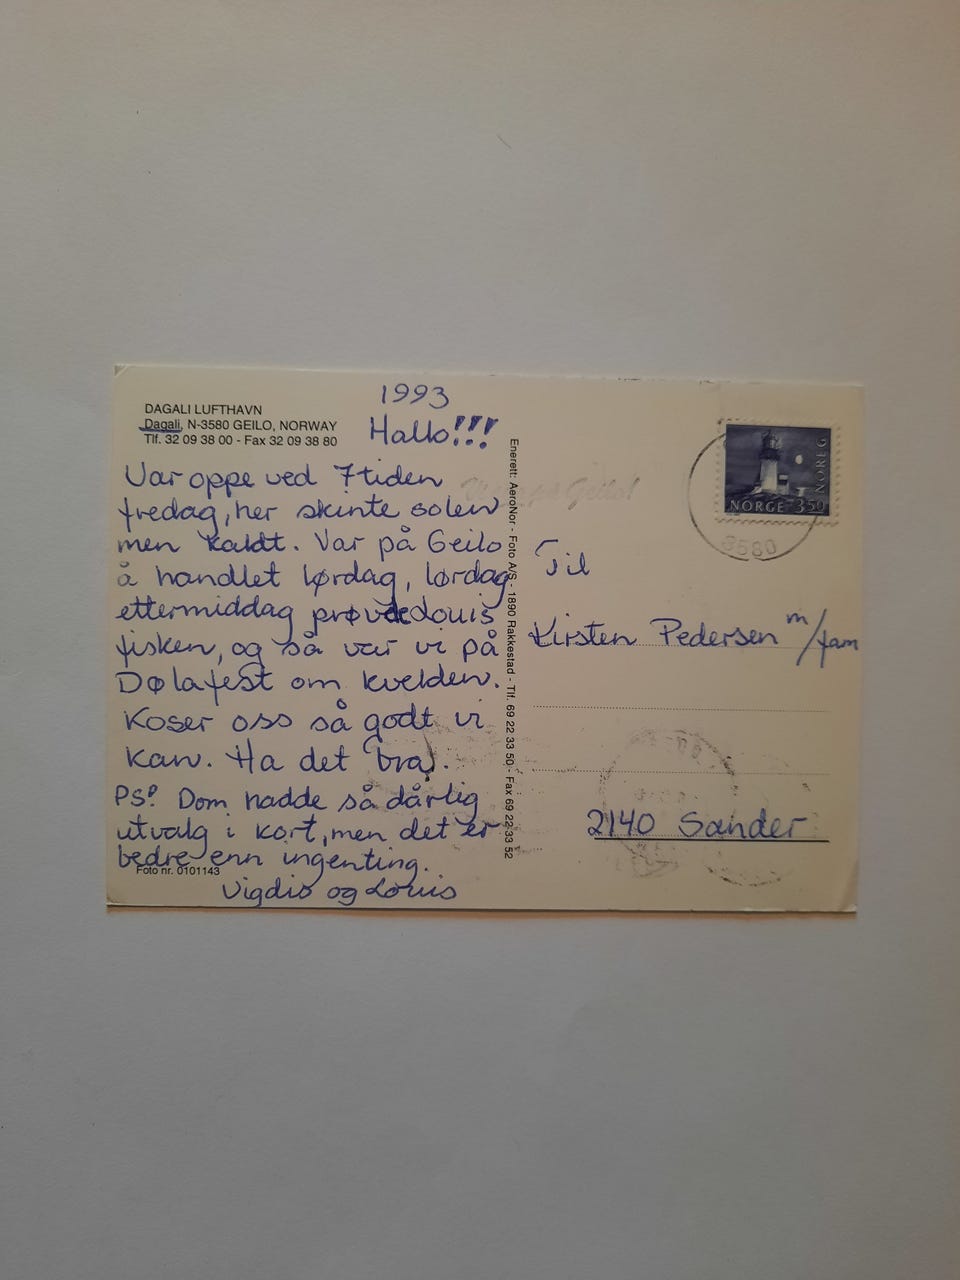 1993
DAGALI LUFTHAVN
Dagali, N-3580 GEILO, NORWAY
Tlf. 32 09 38 00 - Fax 32 09 38 80
Hallo!!!
Var oppe ved 7 tiden
fredag, her skinte solen
men kaldt. Var på Geilo
å handlet lørdag, lørdag
ettermiddag prøvde Louis
fisken, og så var vi på
Dølafest om kvelden.
Koser oss så godt vi
kan. Ha det bra!.
PS! Dom hadde så dårlig
utvalg i kort, men det er
bedre enn ingenting.
Foto nr. 0101143
Vigdis og Louis
Enerett: AeroNor - Foto A/S - 1890 Rakkestad - Tlf. 69 22 33 50 - Fax 69 22 33 52
Geilo!
NOREG
NORGE 350
3580
Til
Kirsten Pedersen m/fam
2140 Sander